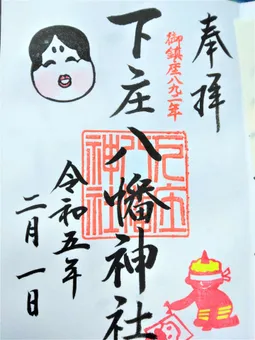 奉拝
御鎮座八九二年
下庄八幡神社
下庄神社
令和五年
二月一日